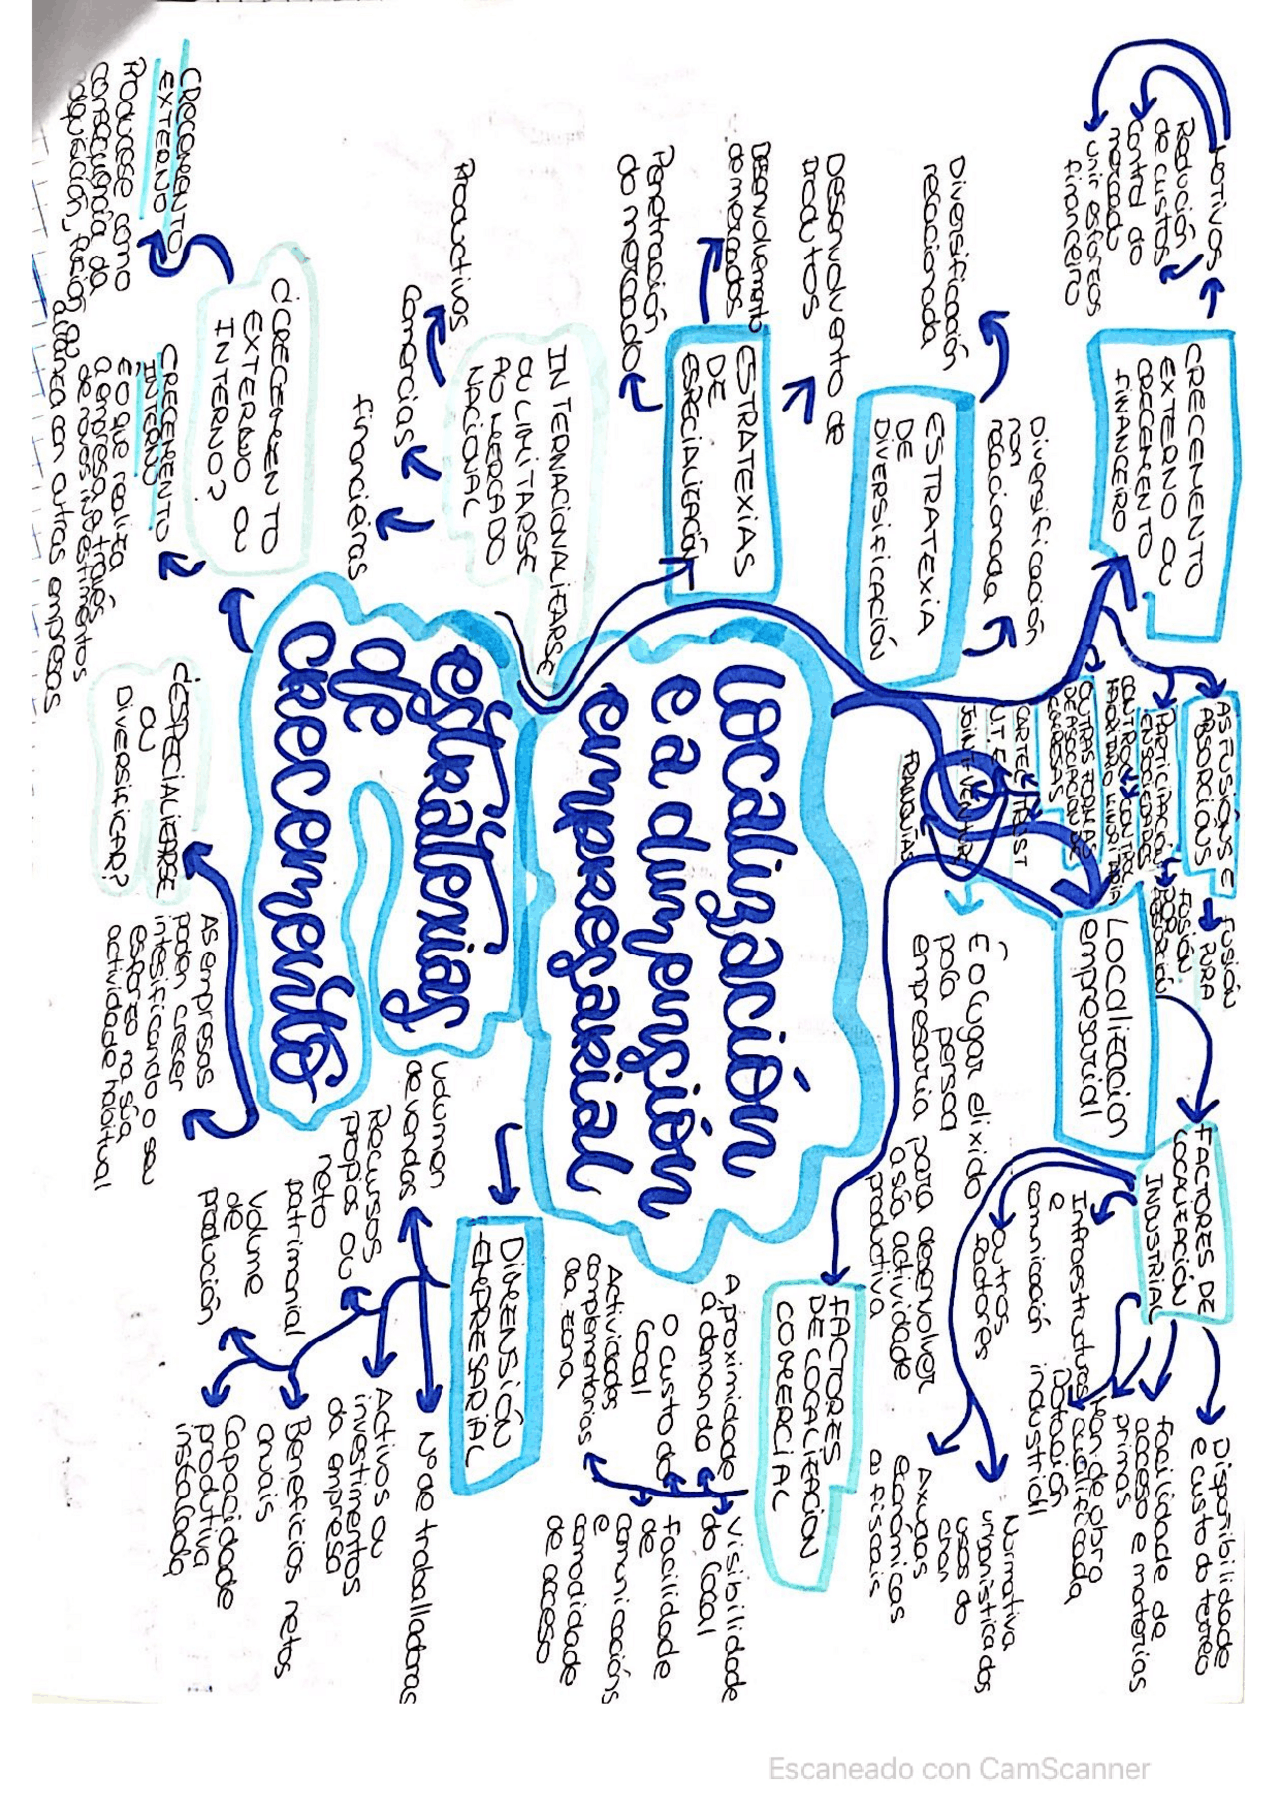 Localización
e a dimensión
empresarial
estratexias
de
crecemento
CRECEMENTO
EXTERNO OU
CRECEMENTO
FINANCEIRO
Motivos
Redución
de custos
Control do
mercado
unir esforzos
financeiro
AS FUSIÓNS E
ABSORCIÓNS
Fusión
PURA
FUSIÓN
POR
PARTICIPACIÓN
EN SOCIEDADES
OUTRAS FORMAS
DE ASOCIACIÓN DE
EMPRESAS
CARTEL
TRUST
U.T.E
JOINT-VENTURE
FRANQUÍAS
ESTRATEXIA
DE
DIVERSIFICACIÓN
Diversificación
relacionada
Diversificación
non
relacionada
ESTRATEXIAS
DE
ESPECIALIZACIÓN
Desenvolvento de
Produtos
Desenvolvemento
de mercados
Penetración
do mercado
INTERNACIONALIZARSE
OU LIMITARSE
AO MERCADO
NACIONAL
Productivos
Comerciais
financieiras
¿CRECEMENTO
EXTERNO OU
INTERNO?
CRECEMENTO
EXTERNO
Prodúcese como
consecuencia da
adquisición, fusión ou
alianza con outras empresas
CRECEMENTO
INTERNO
é o que realiza
a empresa a través
de novos investimentos
¿ESPECIALIZARSE
OU
DIVERSIFICAR?
As empresas
poden crecer
intesificando o seu
esforzo na súa
actividade habitual
Localización
empresarial
É o lugar elixido
pola persoa
empresaria para desenvolver
a súa actividade
productiva
FACTORES DE
LOCALIZACIÓN
INDUSTRIAL
Dispoñibilidade
e custo do terreo
Facilidade de
acceso e materias
primas
Man de obra
cualificada
Dotación
industrial
Infraestructuras
e
comunicación
outros
factores
Normativa
urbanística dos
usos do
chan
Axudas
económicas
ou fiscais
FACTORES
DE LOCALIZACIÓN
COMERCIAL
A proximidade
á demanda
O custo do
local
Actividades
complementarias
da zona
Visibilidade
do local
Facilidade
de
comunicacións
e
comodidade
de acceso
DIMENSIÓN
EMPRESARIAL
Volumen
de vendas
Recursos
propios ou
neto
patrimonial
Volume
de
produción
Nº de traballadoras
Activos ou
investimentos
da empresa
Beneficios netos
anuais
Capacidade
produtiva
instalada
Escaneado con CamScanner